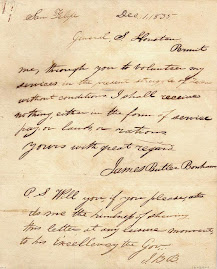 San Felipe Dec 1, 1835
General S. Houston
Permit
me, through you to volunteer my
services in the present struggle of Texas
without conditions. I shall receive
nothing either in the form of service
pay or lands or rations
Yours with great regard
James Butler Bonham
P.S. Will you, if you please, also
do me the kindness of showing
this letter at any leisure moment,
to his Excellency, the Gov.
J.B.B.